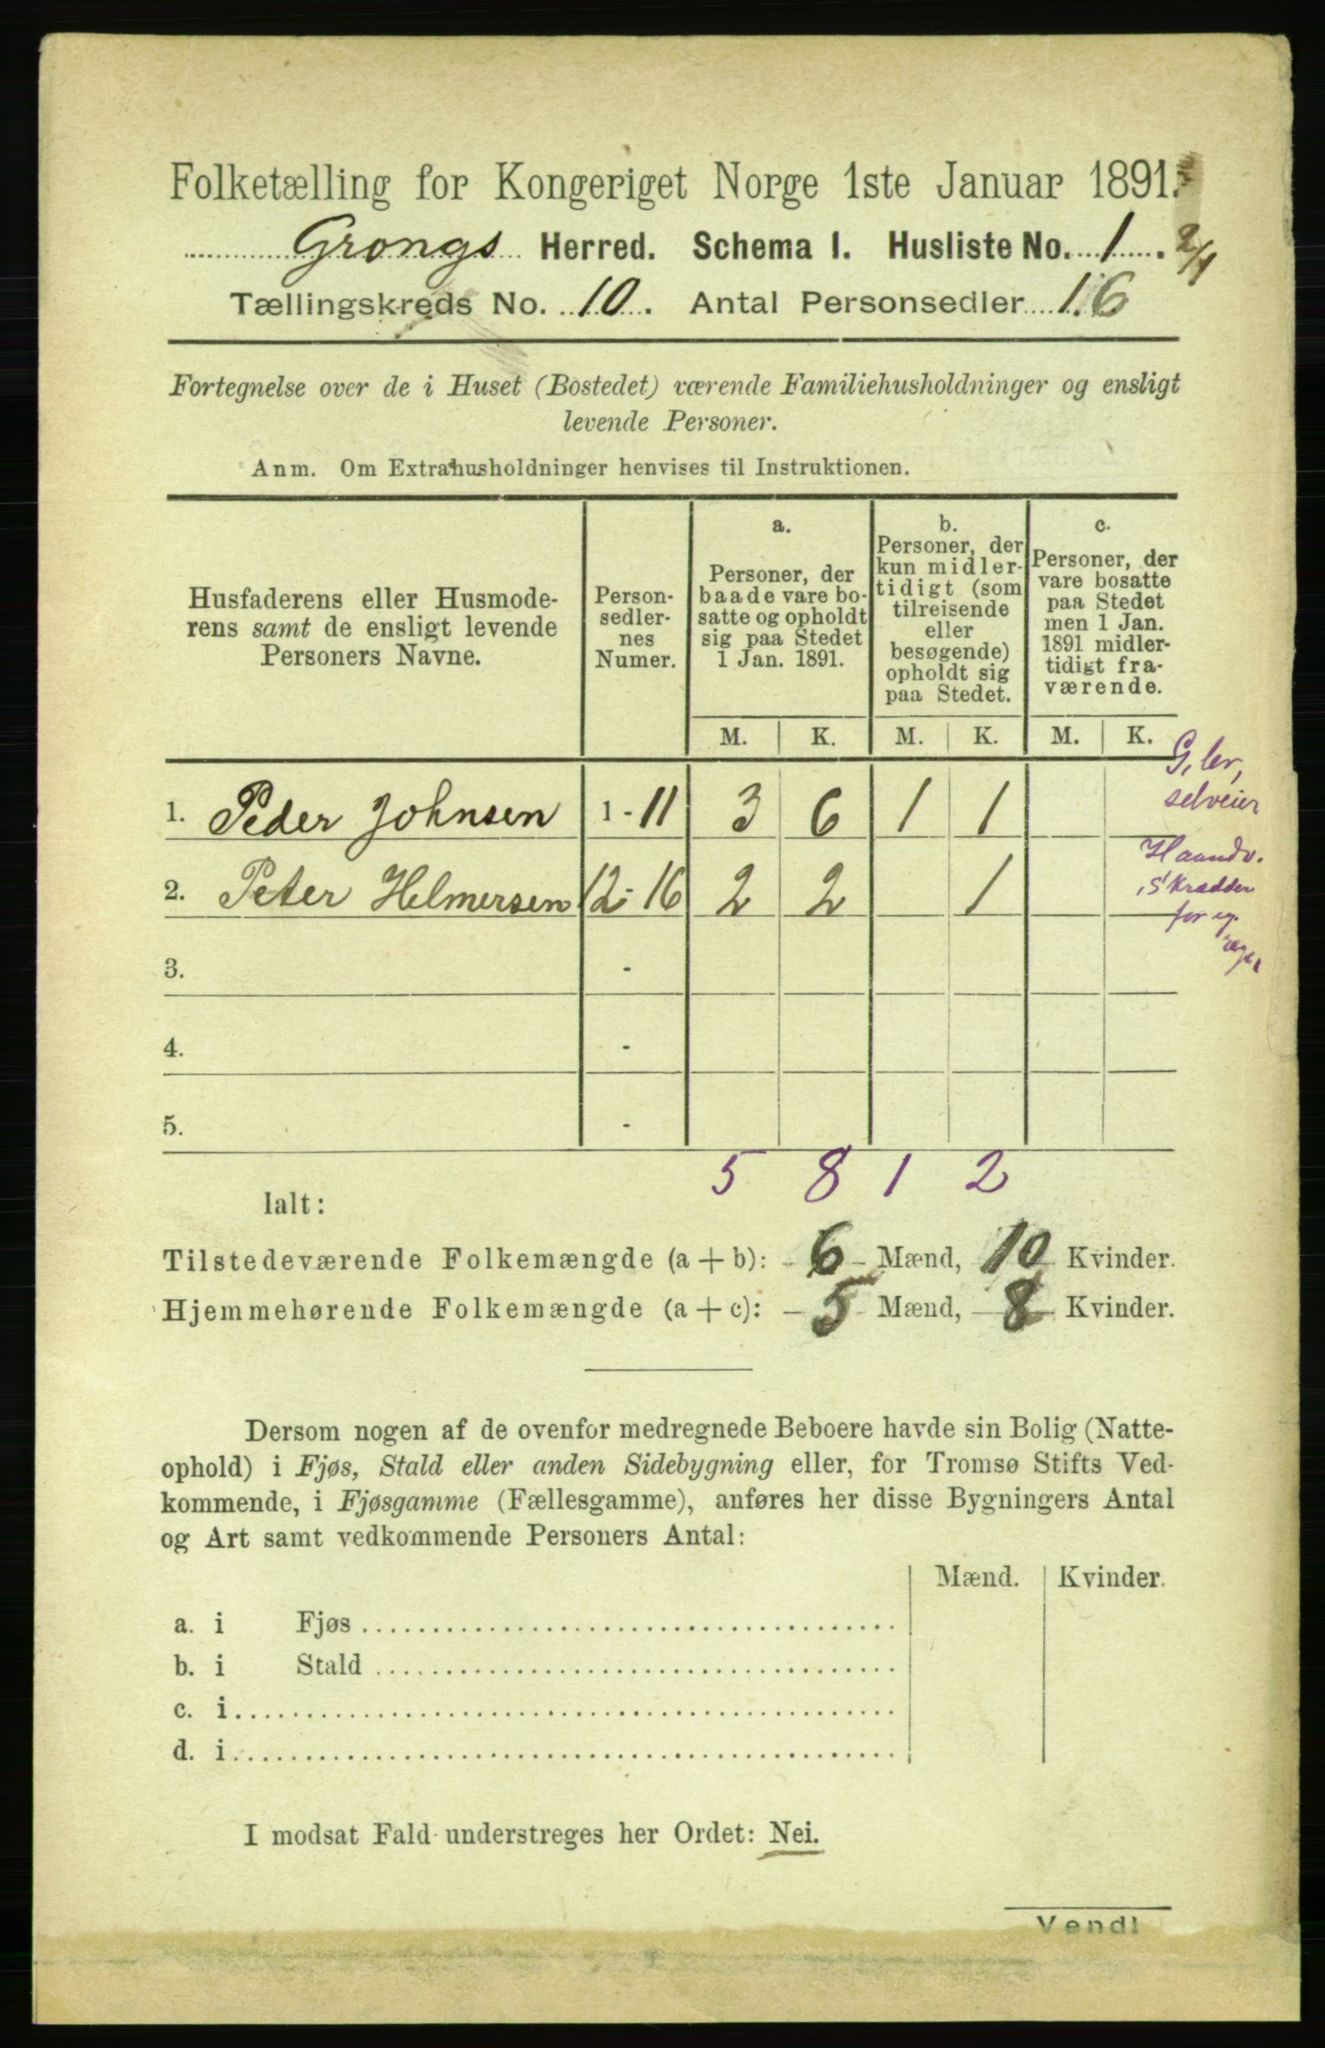 Folketælling for Kongeriget Norge 1ste Januar 1891.
Grongs Herred. Schema I. Husliste No. 1. 2/1
Tællingskreds No. 10. Antal Personsedler 16
Fortegnelse over de i Huset (Bostedet) værende Familiehusholdninger og ensligt
levende Personer.
Anm. Om Extrahusholdninger henvises til Instruktionen.
Husfaderens eller Husmode-
rens samt de ensligt levende
Personers Navne.
Person-
sedler-
nes
Numer.
a.
Personer, der
baade vare bo-
satte og opholdt
sig paa Stedet
1 Jan. 1891.
b.
Personer, der
kun midler-
tidigt (som
tilreisende
eller
besøgende)
opholdt sig
paa Stedet.
c.
Personer, der
vare bosatte
paa Stedet
men 1 Jan.
1891 midler-
tidigt fra-
værende.
M. K. M. K. M. K.
1. Peder Johnsen 1 - 11 3 6 1 1
G. br,
selveier
2. Peter Helmersen 12 - 16 2 2 1
Haandv.
Skrædder
for eg.
3. -
4. -
5. -
5 8 1 2
Ialt:
Tilstedeværende Folkemængde (a + b): 6 Mænd, 10 Kvinder.
Hjemmehørende Folkemængde (a + c): 5 Mænd, 8 Kvinder.
Dersom nogen af de ovenfor medregnede Beboere havde sin Bolig (Natte-
ophold) i Fjøs, Stald eller anden Sidebygning eller, for Tromsø Stifts Ved-
kommende, i Fjøsgamme (Fællesgamme), anføres her disse Bygningers Antal
og Art samt vedkommende Personers Antal:
Mænd. Kvinder.
a. i Fjøs
b. i Stald
c. i
d. i
I modsat Fald understreges her Ordet: Nei.
Vend!